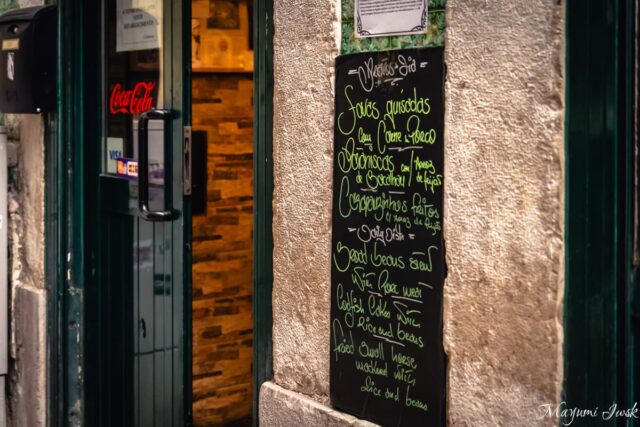 Coca-Cola
VISA
Pratos-Dia
Favas guisadas
com Carne
Pataniscas com Arroz
de Bacalhau de feijão
Carapauzinhos fritos
Daily Dish
Broad beans stew
with Porc meat
Codfish Cakes with
Rice and beans
fried small horse
mackerel with
Rice and beans
Mayumi Iwsk